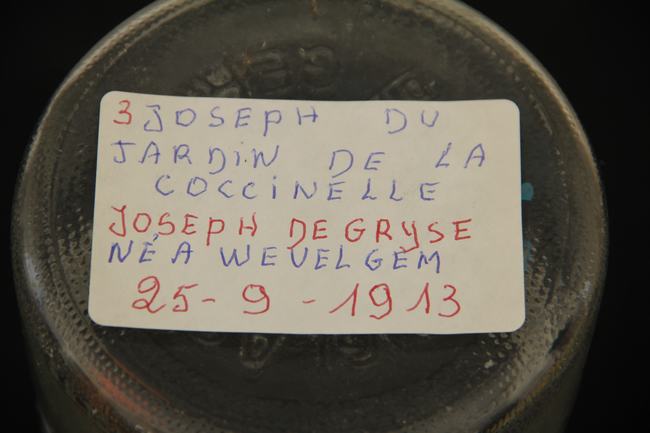 3 JOSEPH DU
JARDiN DE LA
COCCiNELLE
JOSEPH DEGRYSE
NÉ A WEVELGEM
25-9-1913